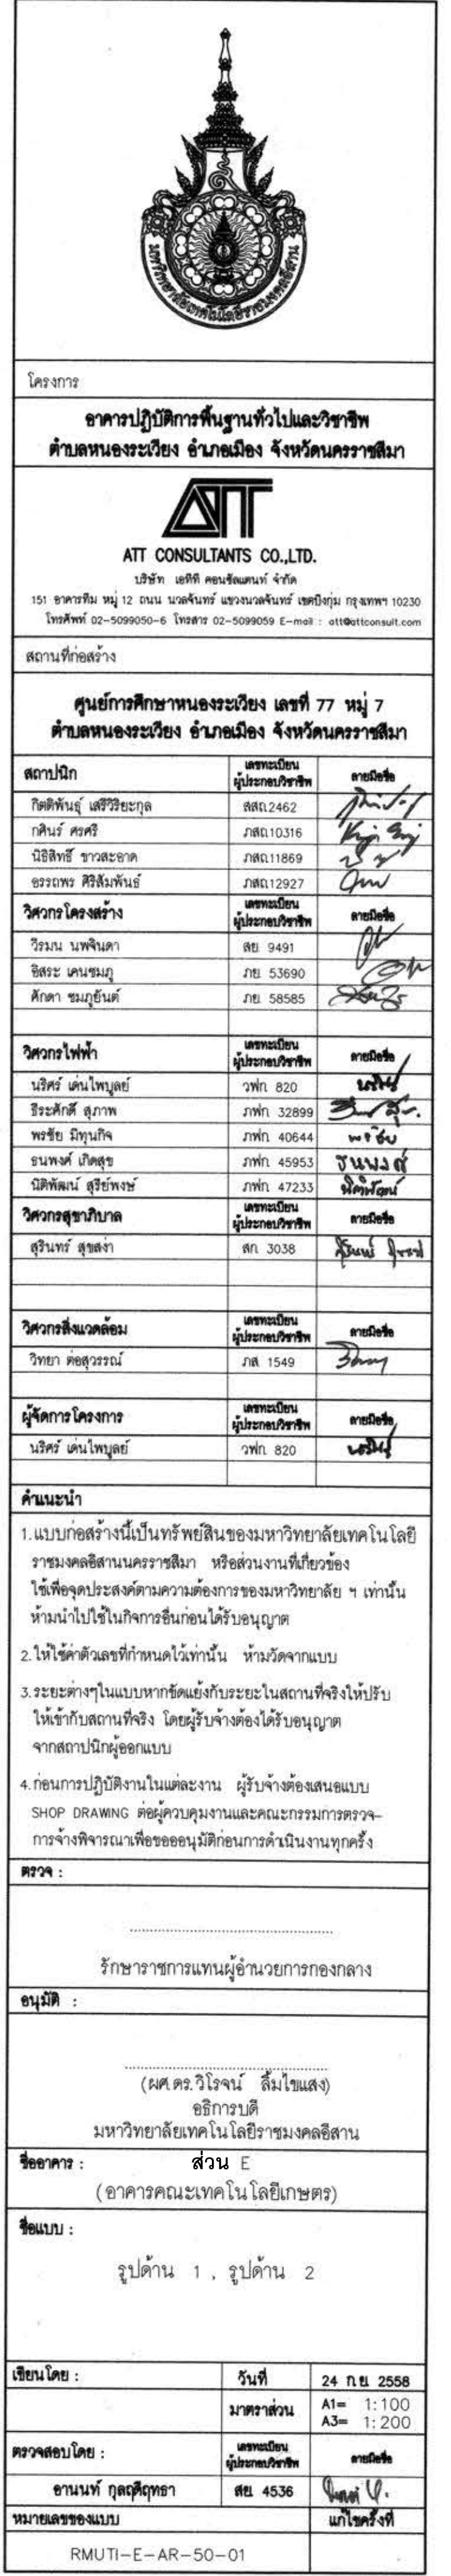 มหาวิทยาลัยเทคโนโลยีราชมงคลอีสาน
โครงการ
อาคารปฏิบัติการพื้นฐานทั่วไปและวิชาชีพ
ตำบลหนองระเวียง อำเภอเมือง จังหวัดนครราชสีมา
ATT
ATT CONSULTANTS CO.,LTD.
บริษัท เอทีที คอนซัลแตนท์ จำกัด
151 อาคารทีม หมู่ 12 ถนน นวลจันทร์ แขวงนวลจันทร์ เขตบึงกุ่ม กรุงเทพฯ 10230
โทรศัพท์ 02-5099050-6 โทรสาร 02-5099059 E-mail : att@attconsult.com
สถานที่ก่อสร้าง
ศูนย์การศึกษาหนองระเวียง เลขที่ 77 หมู่ 7
ตำบลหนองระเวียง อำเภอเมือง จังหวัดนครราชสีมา
สถาปนิก เลขทะเบียน ผู้ประกอบวิชาชีพ ลายมือชื่อ
กิตติพันธุ์ เสรีวิริยะกุล สสถ.2462
กศินร์ ศรศรี ภสถ.10316
นิธิสิทธิ์ ขาวสะอาด ภสถ.11869
อรรถพร ศิริสัมพันธ์ ภสถ.12927
วิศวกรโครงสร้าง เลขทะเบียน ผู้ประกอบวิชาชีพ ลายมือชื่อ
วีรมน นพจินดา สย. 9491
อิสระ เคนชมภู ภย. 53690
ศักดา ชมภูยันต์ ภย. 58585
วิศวกรไฟฟ้า เลขทะเบียน ผู้ประกอบวิชาชีพ ลายมือชื่อ
นริศร์ เด่นไพบูลย์ วฟก. 820 นริศร์
ธีระศักดิ์ สุภาพ ภฟก. 32899
พรชัย มีทุนกิจ ภฟก. 40644 พรชัย
ธนพงศ์ เกิดสุข ภฟก. 45953 ธนพงศ์
นิติพัฒน์ สุรีย์พงษ์ ภฟก. 47233 นิติพัฒน์
วิศวกรสุขาภิบาล เลขทะเบียน ผู้ประกอบวิชาชีพ ลายมือชื่อ
สุรินทร์ สุขสง่า สก. 3038
วิศวกรสิ่งแวดล้อม เลขทะเบียน ผู้ประกอบวิชาชีพ ลายมือชื่อ
วิทยา ต่อสุวรรณ์ ภส. 1549
ผู้จัดการโครงการ เลขทะเบียน ผู้ประกอบวิชาชีพ ลายมือชื่อ
นริศร์ เด่นไพบูลย์ วฟก. 820 นริศร์
คำแนะนำ
1.แบบก่อสร้างนี้เป็นทรัพย์สินของมหาวิทยาลัยเทคโนโลยี
ราชมงคลอีสานนครราชสีมา หรือส่วนงานที่เกี่ยวข้อง
ใช้เพื่อจุดประสงค์ตามความต้องการของมหาวิทยาลัย ฯ เท่านั้น
ห้ามนำไปใช้ในกิจการอื่นก่อนได้รับอนุญาต
2.ให้ใช้ค่าตัวเลขที่กำหนดไว้เท่านั้น ห้ามวัดจากแบบ
3.ระยะต่างๆในแบบหากขัดแย้งกับระยะในสถานที่จริงให้ปรับ
ให้เข้ากับสถานที่จริง โดยผู้รับจ้างต้องได้รับอนุญาต
จากสถาปนิกผู้ออกแบบ
4.ก่อนการปฏิบัติงานในแต่ละงาน ผู้รับจ้างต้องเสนอแบบ
SHOP DRAWING ต่อผู้ควบคุมงานและคณะกรรมการตรวจ-
การจ้างพิจารณาเพื่อขออนุมัติก่อนการดำเนินงานทุกครั้ง
ตรวจ :
รักษาราชการแทนผู้อำนวยการกองกลาง
อนุมัติ :
(ผศ.ดร.วิโรจน์ ลิ้มไขแสง)
อธิการบดี
มหาวิทยาลัยเทคโนโลยีราชมงคลอีสาน
ชื่ออาคาร : ส่วน E
(อาคารคณะเทคโนโลยีเกษตร)
ชื่อแบบ :
รูปด้าน 1 , รูปด้าน 2
เขียนโดย : วันที่ 24 ก.ย. 2558
มาตราส่วน A1= 1:100
A3= 1:200
ตรวจสอบโดย : เลขทะเบียน ผู้ประกอบวิชาชีพ ลายมือชื่อ
อานนท์ กุลฤดีฤทธา สย. 4536
หมายเลขของแบบ แก้ไขครั้งที่
RMUTI-E-AR-50-01